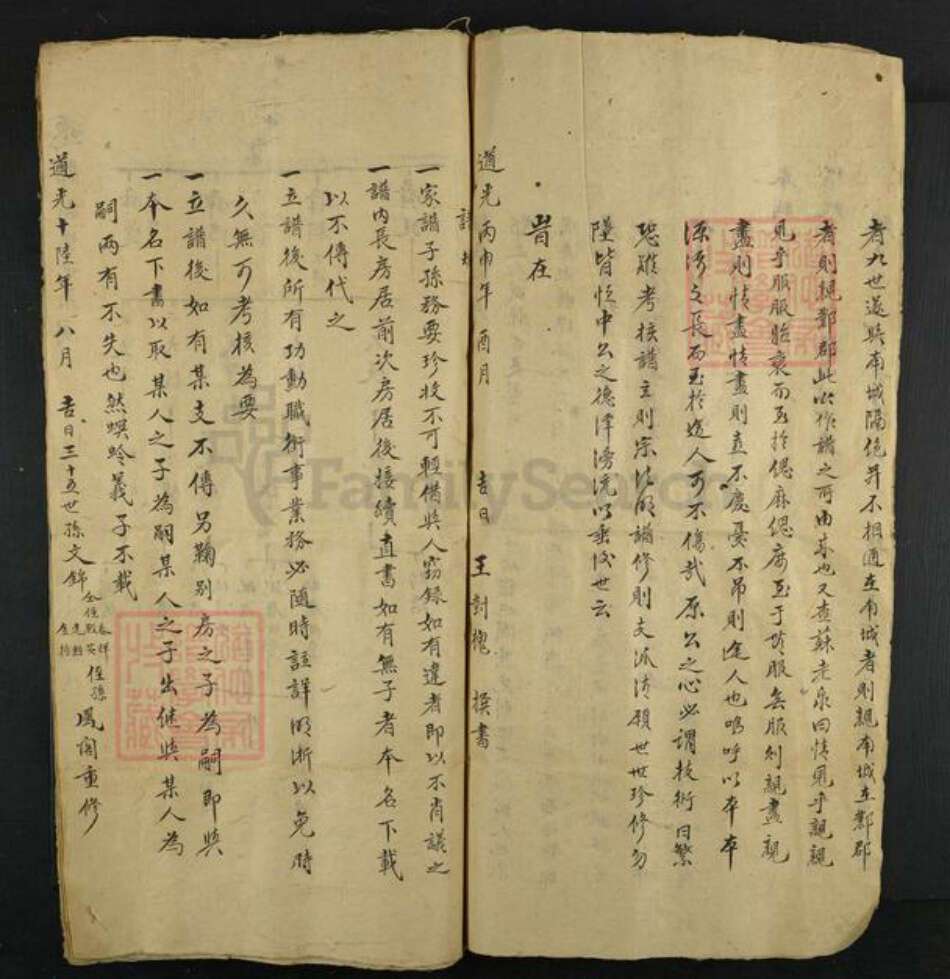 者九世遂與南城隔絕幷不相通在南城者則親南城在鄴郡
者則親鄴郡此吾作譜之所由來也又查蘇老泉曰情見乎親親
見乎服服始衰而至於緦麻緦麻至于無服無服則親盡親
盡則情盡情盡則喜不慶憂不吊則途人也嗚呼以本本
源源之長而至於途人可不傷哉原公之心必謂技術日繁
恐難考核譜立則宗法明譜修則支派清願世世珍修勿
墜皆恆中公之德澤滂沆以垂後世云
旹在
道光丙申年酉月 吉日 王封 撰書
一家譜子孫務要珍收不可輕借與人窃錄如有違者即以不肖議之
一譜內長房居前次房居後接續直書如有無子者本名下載
以不傳代之
一立譜後所有功勳職銜事業務必隨時註詳明晰以免時
久無可考核為要
一立譜後如有某支不傳另鞠別房之子為嗣即與
一本名下書以取某人之子為嗣某人之子出繼與某人為
嗣兩有不失也然螟蛉義子不載
道光十陸年 八月 吉日三十五世孫文錦 侄孫鳳閣重修
FamilySearch